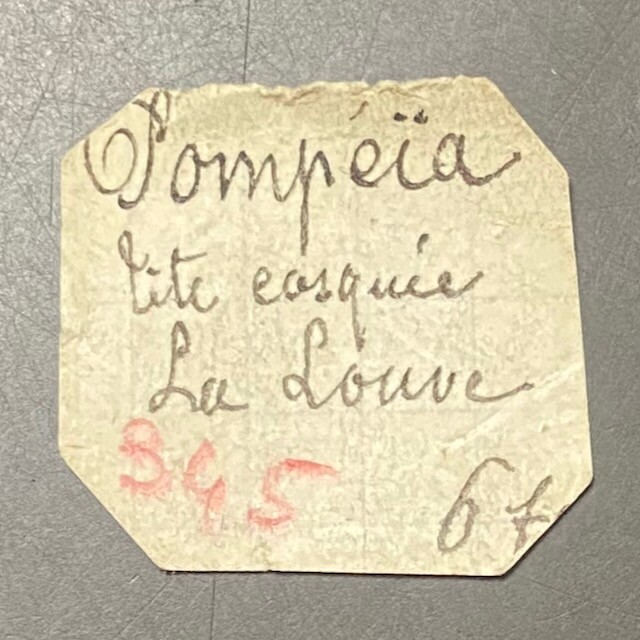 Pompéïa
tête casquée
La Louve
345
6 f